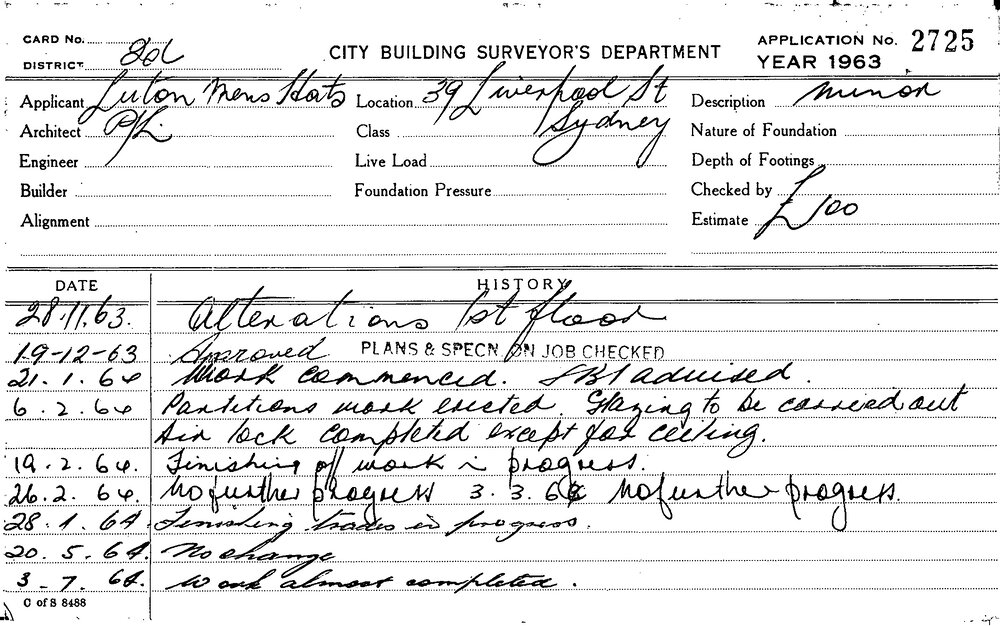 CARD No.
CITY BUILDING SURVEYOR'S DEPARTMENT
APPLICATION No. 2725
DISTRICT
YEAR 1963
Applicant Luton Mens Hats
Location 39 Liverpool St
Description Minor
Architect P/L
Class Sydney
Nature of Foundation
Engineer
Live Load
Depth of Footings
Builder
Foundation Pressure
Checked by
Alignment
Estimate £100
DATE HISTORY
28.11.63. Alterations 1st floor
19-12-63 Approved PLANS & SPECN. ON JOB CHECKED
21.1.64 Work commenced. advised.
6.2.64 Partitions work erected. Glazing to be carried out
Air lock completed except for ceiling.
19.2.64. Finishing of work in progress.
26.2.64. No further progress 3.3.64 No further progress.
28. 64. Finishing trades in progress.
20.5.64. No change
3-7.64. Work almost completed.
C of S 8488